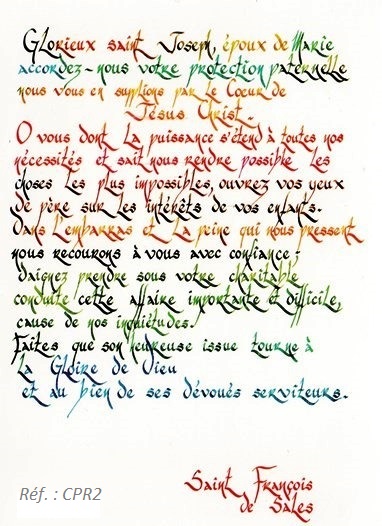 Glorieux saint Joseph, époux de Marie
accordez-nous votre protection paternelle
nous vous en supplions par le Cœur de
Jésus Christ.
O vous dont la puissance s'étend à toutes nos
nécessités et sait nous rendre possible les
choses les plus impossibles, ouvrez vos yeux
de père sur les intérêts de vos enfants.
Dans l'embarras et la peine qui nous pressent
nous recourons à vous avec confiance ;
daignez prendre sous votre charitable
conduite cette affaire importante et difficile,
cause de nos inquiétudes.
Faites que son heureuse issue tourne à
la Gloire de Dieu
et au bien de ses dévoués serviteurs.
Saint François
de Sales
Réf. : CPR2